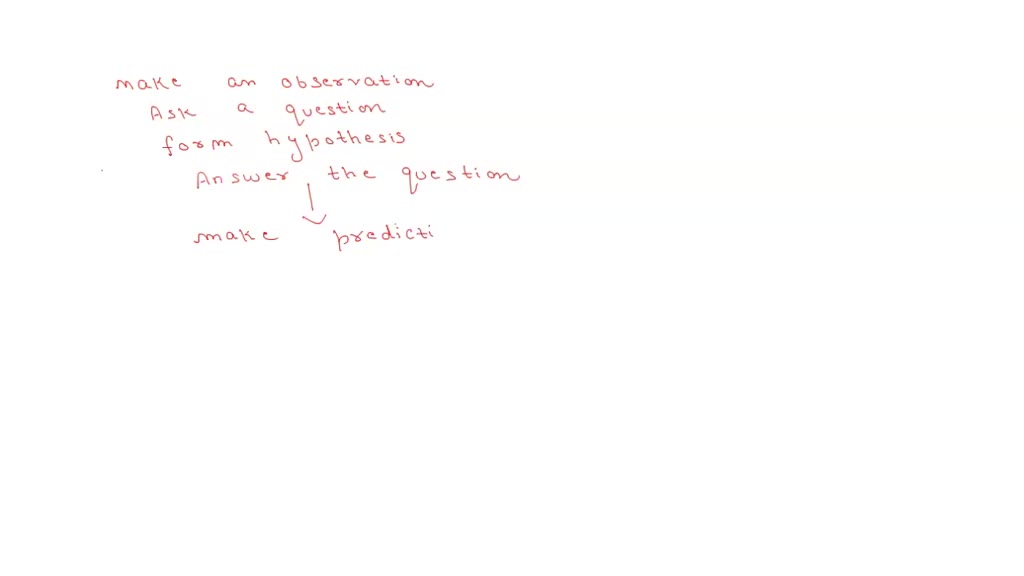 make an observation
Ask a question
form hypothesis
Answer the question
make predicti